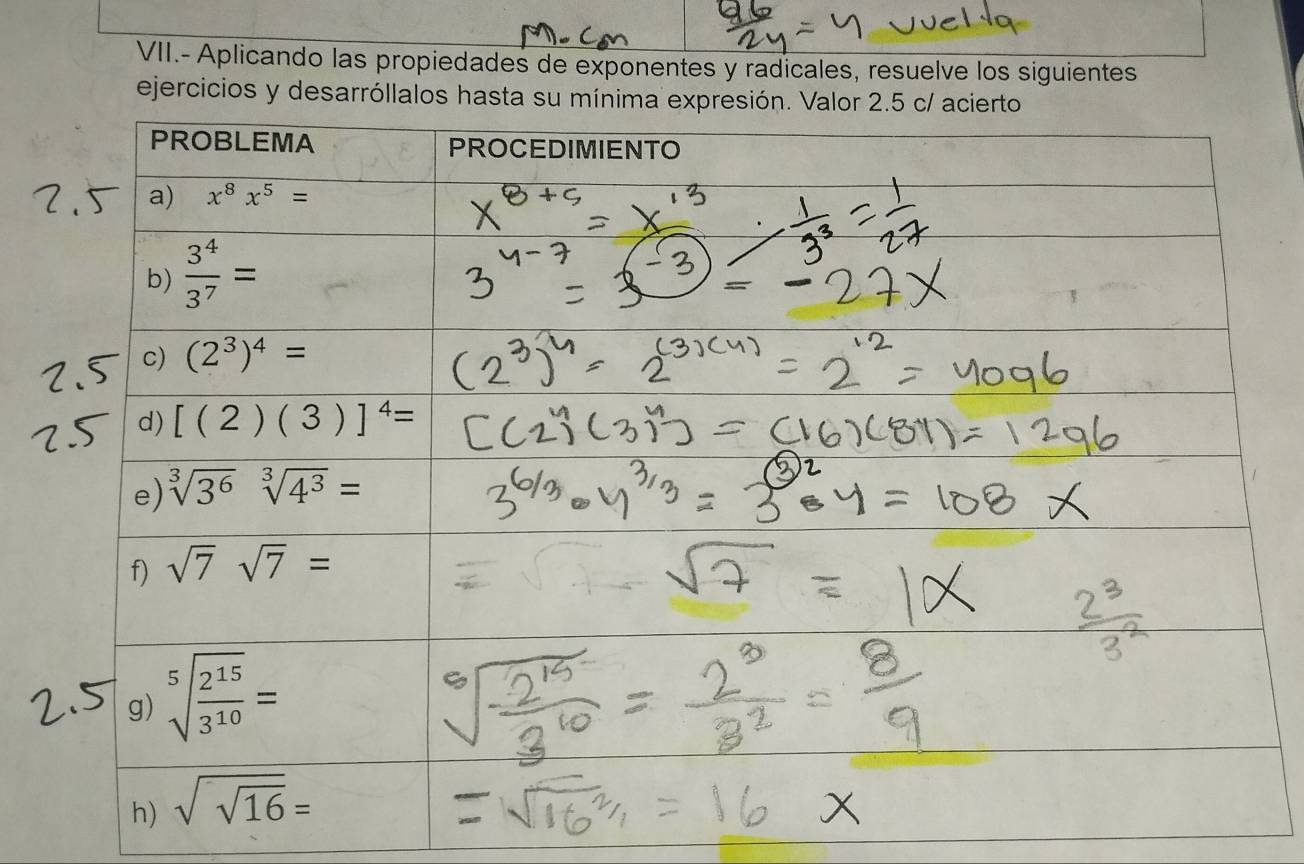 M. Com 96/2y = 4 vuelta
VII.- Aplicando las propiedades de exponentes y radicales, resuelve los siguientes
ejercicios y desarróllalos hasta su mínima expresión. Valor 2.5 c/ acierto
PROBLEMA PROCEDIMIENTO
2.5 a) x⁸ x⁵ = x⁸⁺⁵ = x¹³
b) 3⁴/3⁷ = 3⁴⁻⁷ = 3⁻³ = -27 X 1/3³ = 1/27
2.5 c) (2³)⁴ = (2³)⁴ = 2⁽³⁾⁽⁴⁾ = 2¹² = 4096
2.5 d) [ ( 2 ) ( 3 ) ] ⁴= [(2)⁴(3)⁴] = (16)(81) = 1296
e) ∛3⁶ ∛4³ = 3⁶ᐟ³ • 4³ᐟ³ = 3³ ² • 4 = 108 X
f) √7 √7 = = √7 = 1 X
2³/3²
2.5 g) ⁵√(2¹⁵/3¹⁰) = ⁵√(2¹⁵/3¹⁰) = 2³/3² = 8/9
h) √√16 = = √16²ᐟ¹ = 16 X